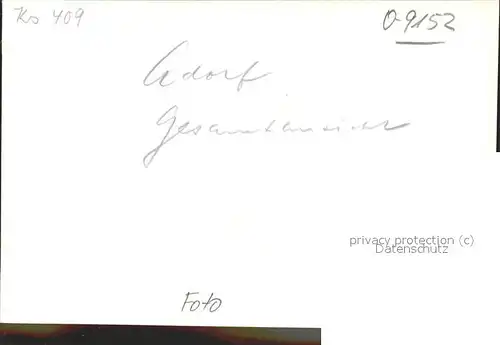 Ks 409
O-9152
Adorf
Gesamtansicht
privacy protection (c)
Datenschutz
Foto